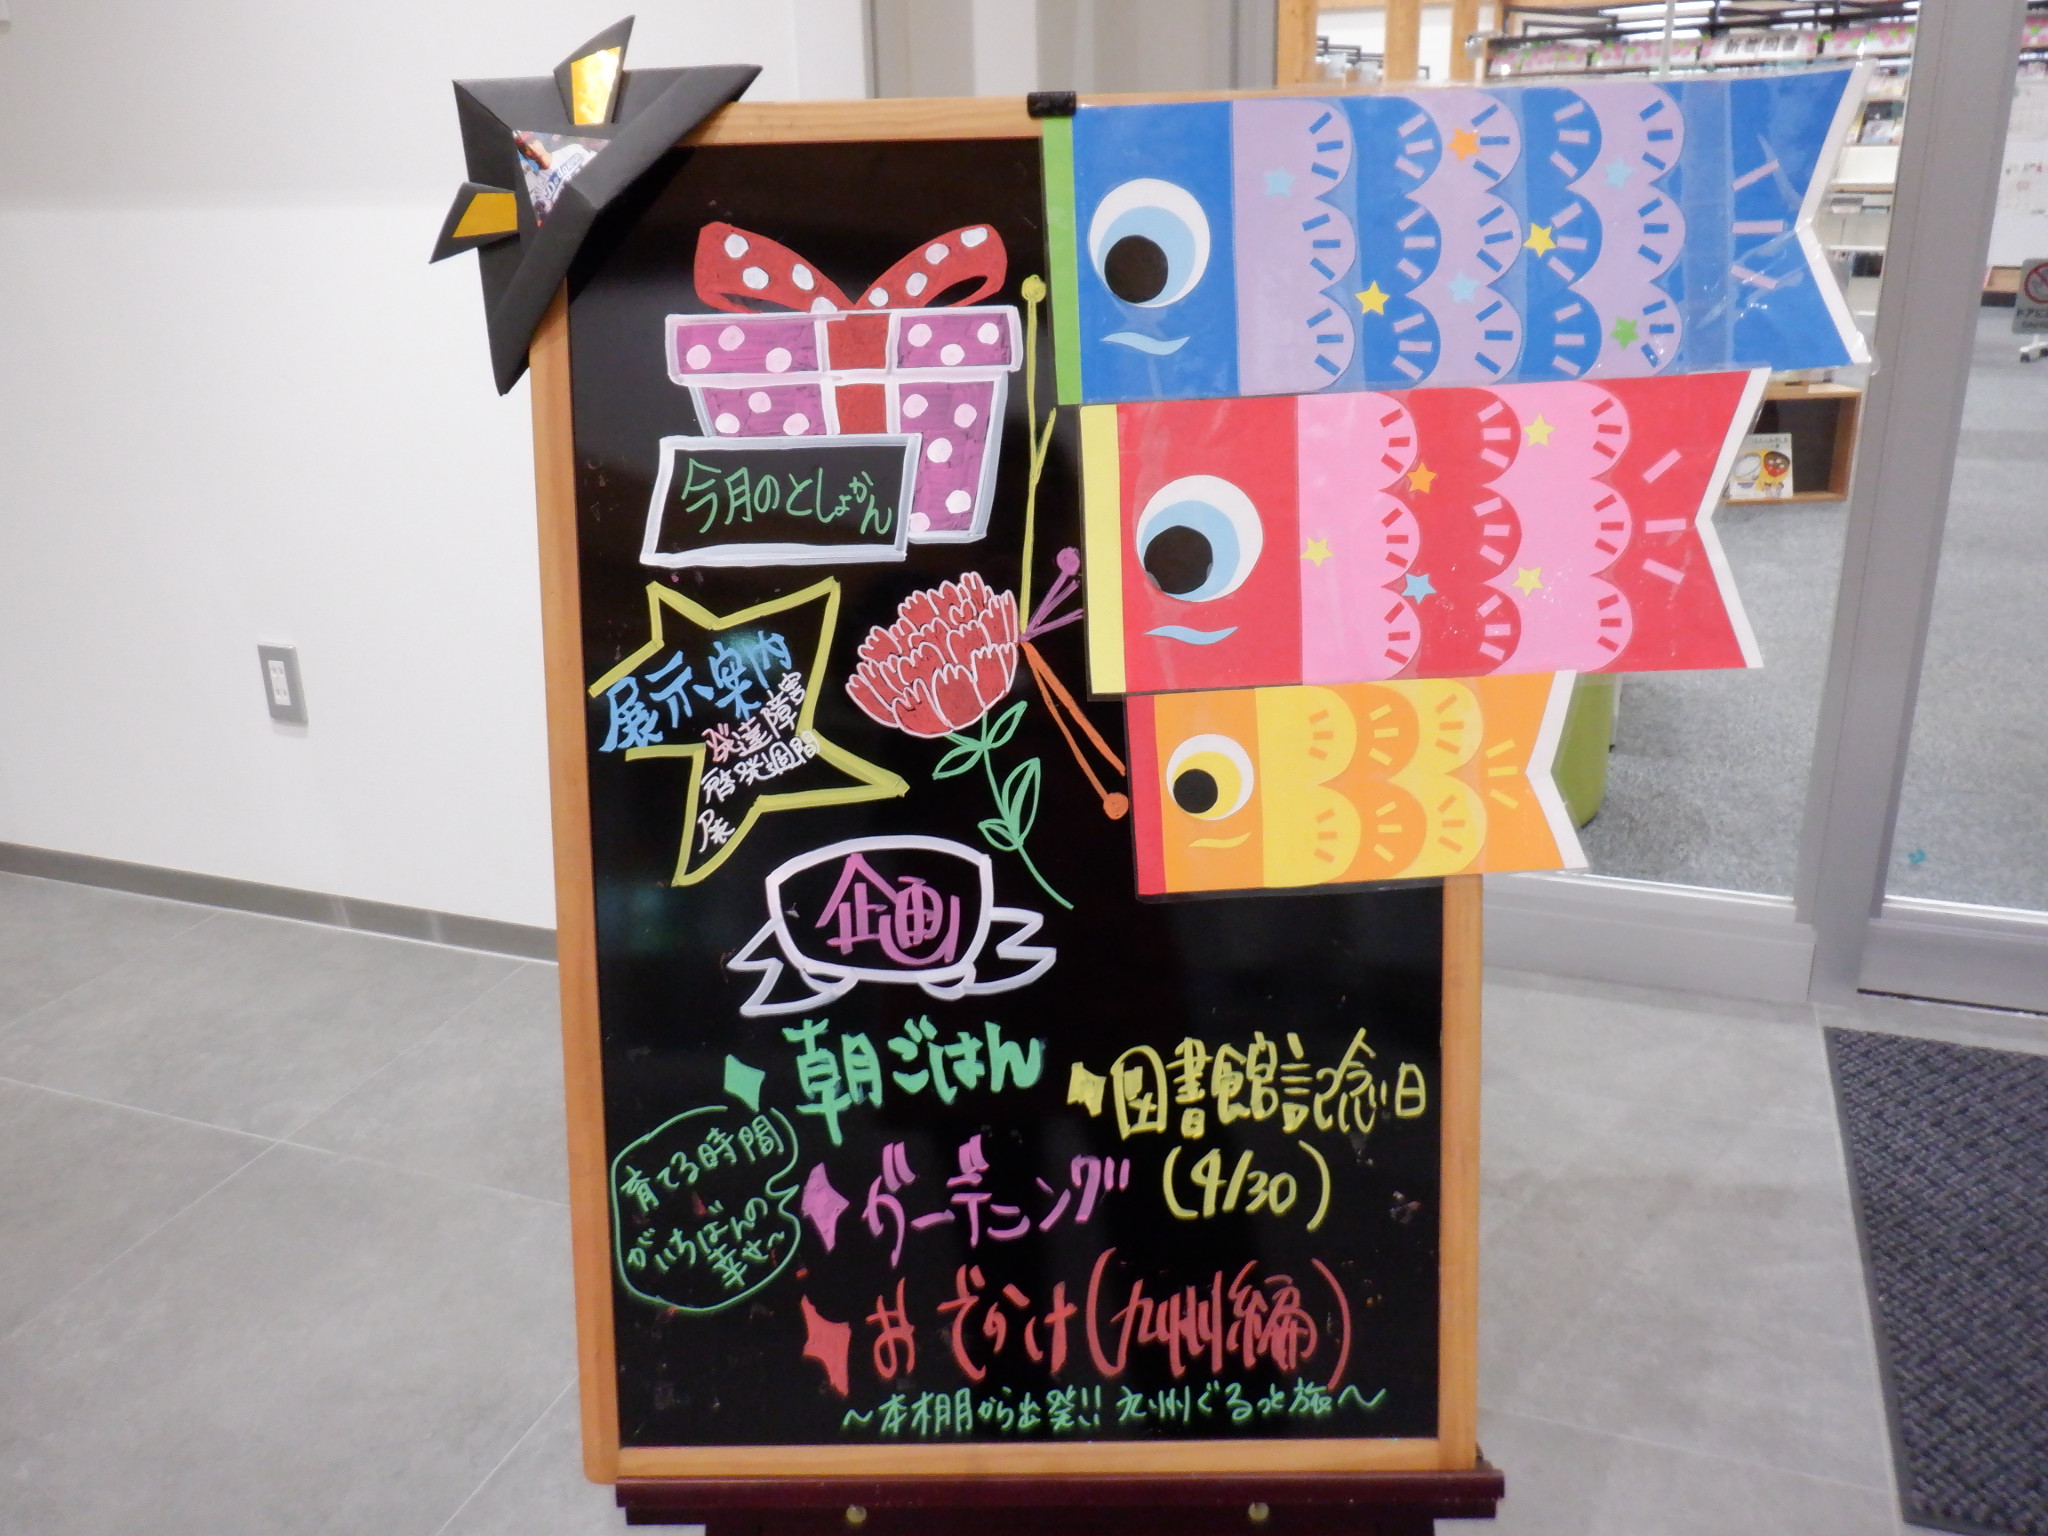 今月のとしょかん
展示案内
発達障害
啓発週間
展
企画
朝ごはん
図書館記念日
(4/30)
育てる時間
がいちばんの
幸せ~
ガーデニング
おでかけ(九州編)
~本棚から出発!! 九州ぐるっと旅~
Dodgers